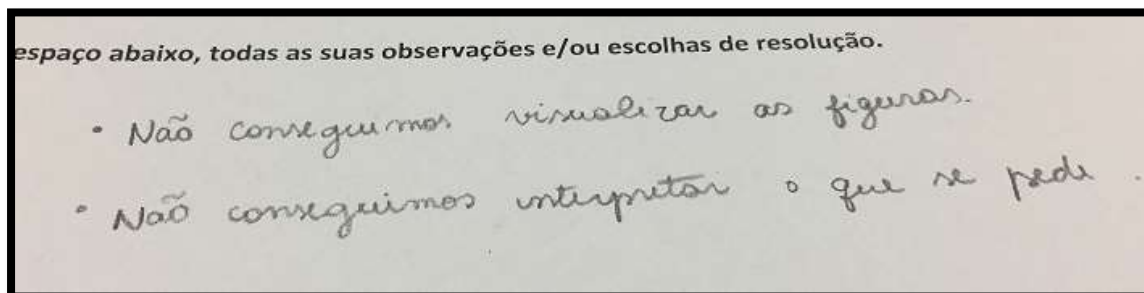 espaço abaixo, todas as suas observações e/ou escolhas de resolução.
• Não conseguimos visualizar as figuras.
• Não conseguimos interpretar o que se pede.